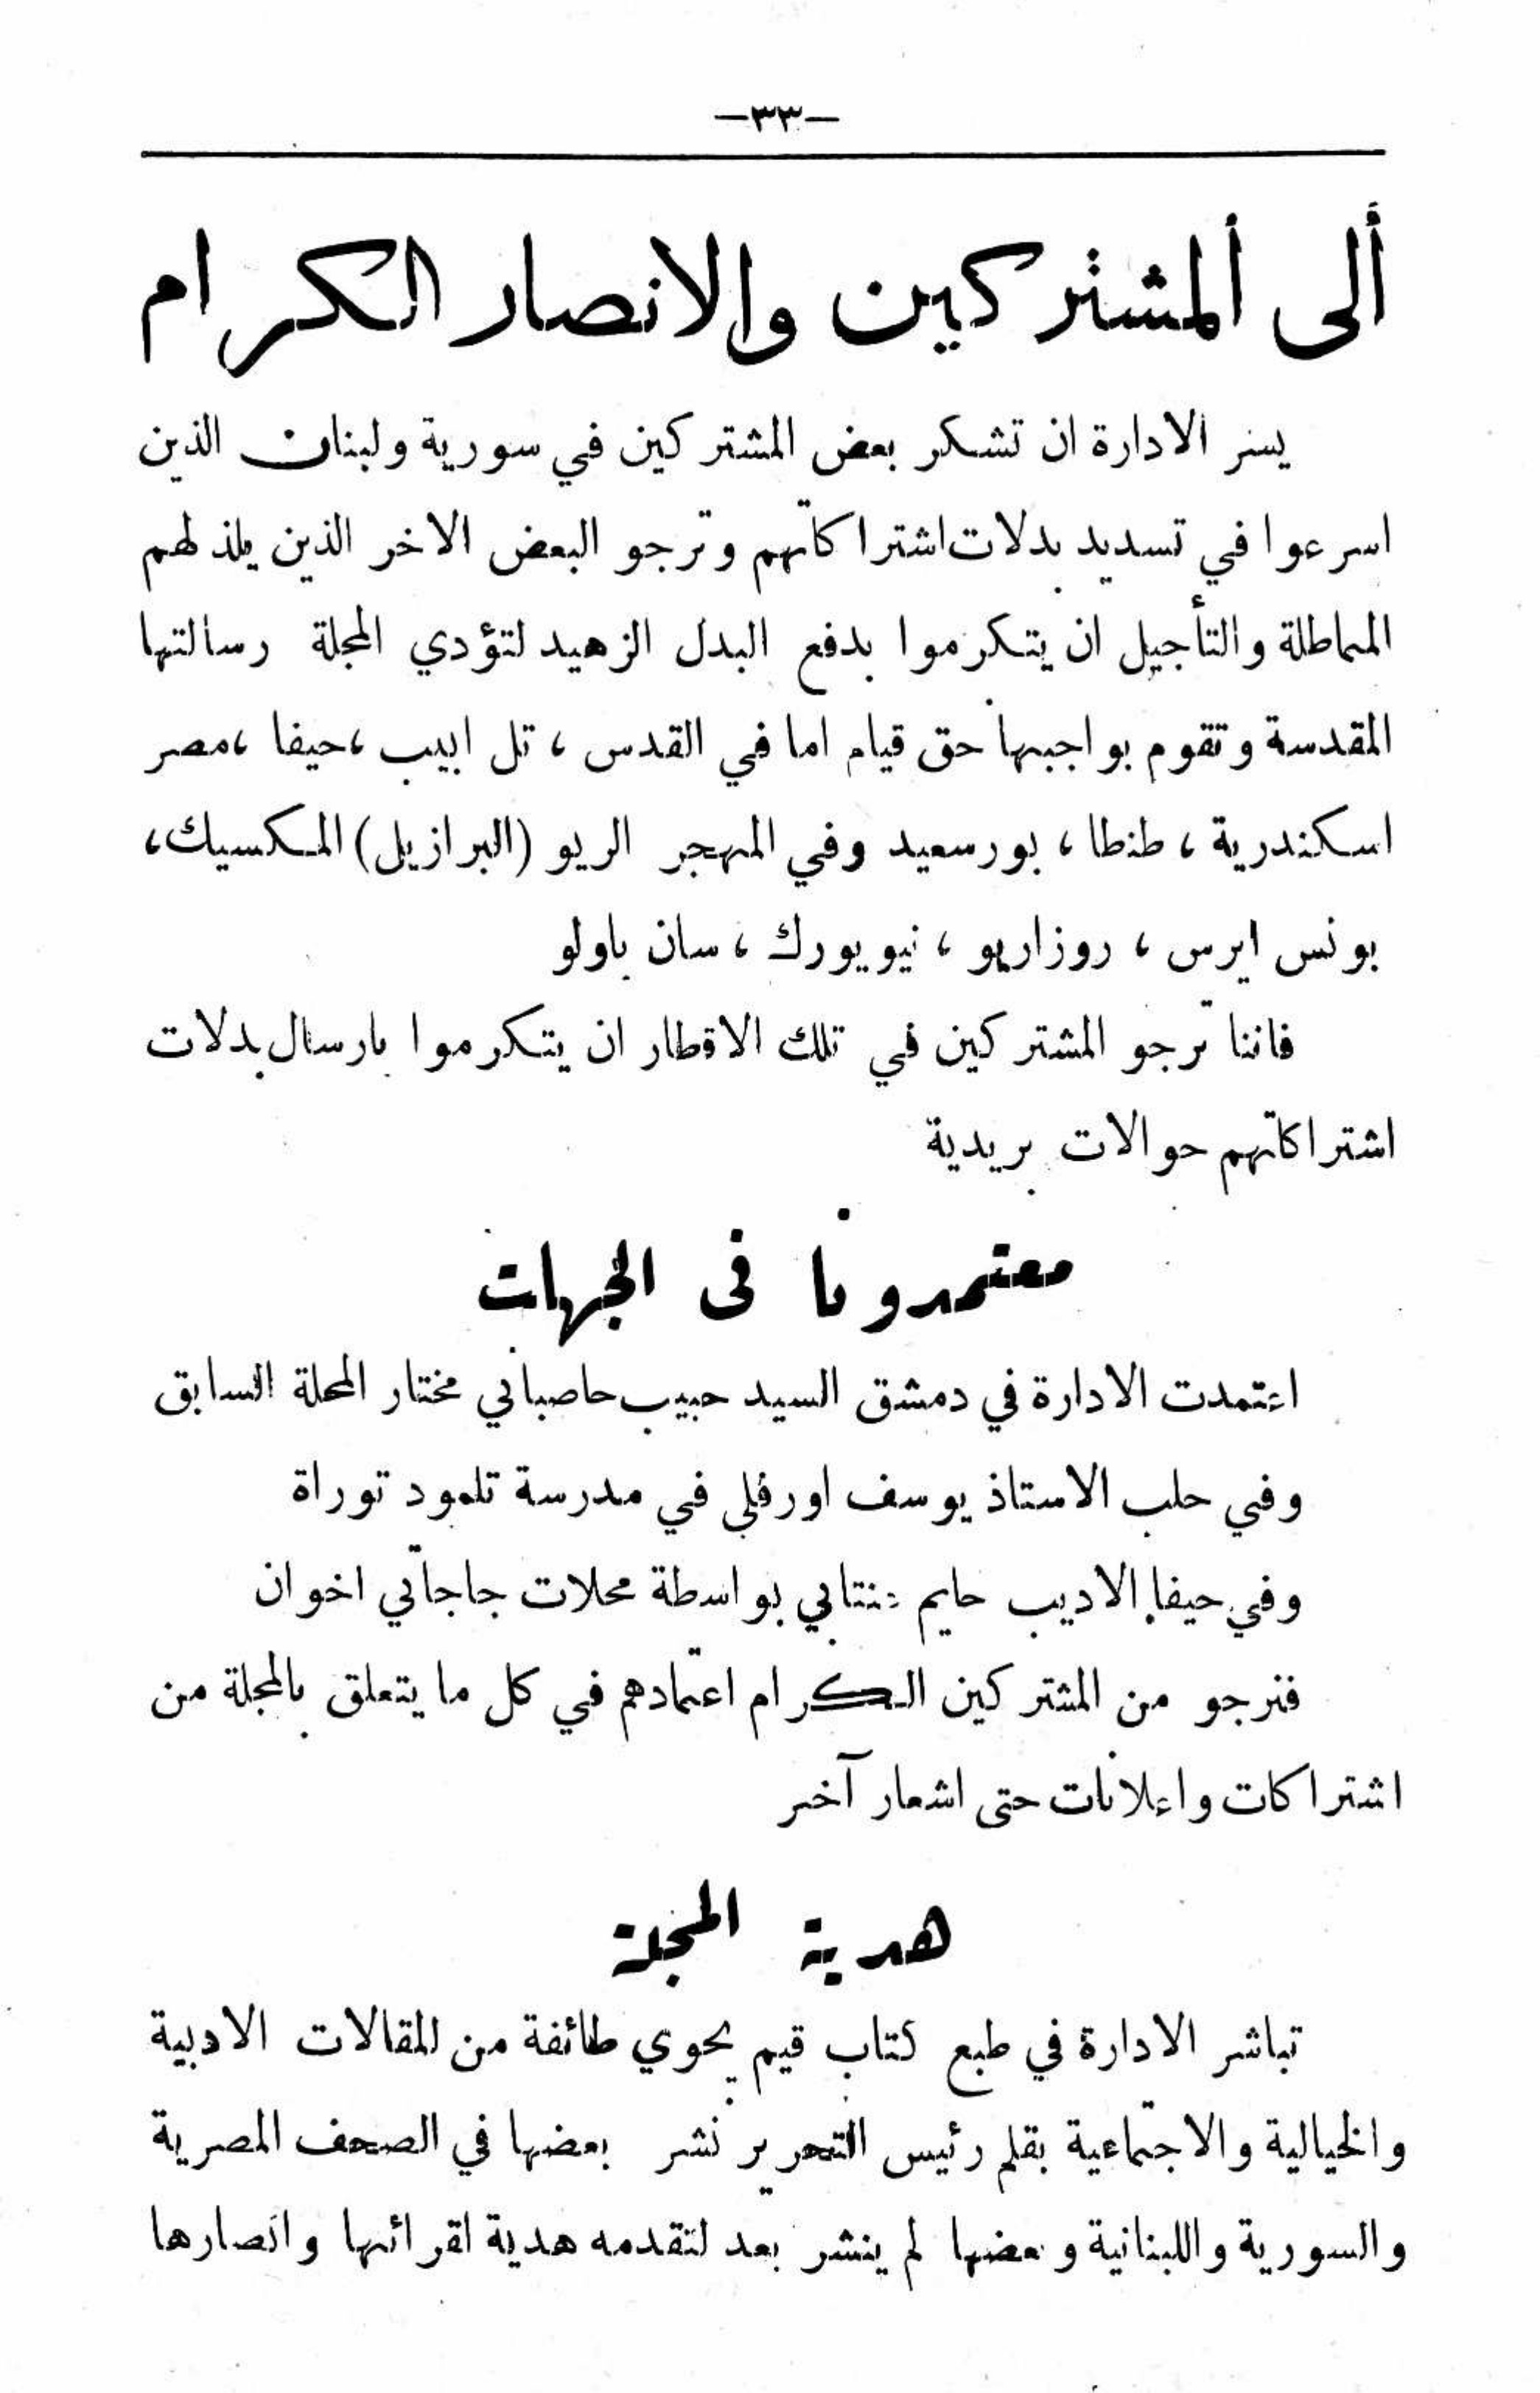 —٣٣—
ألى ألمشتركين والانصار الكرام
يسر الادارة ان تشكر بعض المشتركين في سورية ولبنان الذين
اسرعوا في تسديد بدلات اشتراكاتهم وترجو البعض الاخر الذين يلذ لهم
المماطلة والتأجيل ان يتكرموا بدفع البدل الزهيد لتؤدي المجلة رسالتها
المقدسة وتقوم بواجبها حق قيام اما في القدس ، تل ابيب ،حيفا ،مصر
اسكندرية ، طنطا ، بورسعيد وفي المهجر الريو (البرازيل) المكسيك،
بونس ايرس ، روزاريو ، نيويورك ، سان باولو
فاننا نرجو المشتركين في تلك الاقطار ان يتكرموا بارسال بدلات
اشتراكاتهم حوالات بريدية
معتمدونا فى الجهات
اعتمدت الادارة في دمشق السيد حبيب حاصباني مختار المحلة السابق
وفي حلب الاستاذ يوسف اورفلي في مدرسة تلمود توراة
وفي حيفا الاديب حايم بواسطة محلات جاجاتي اخوان
فنرجو من المشتركين الكرام اعتمادهم في كل ما يتعلق بالمجلة من
اشتراكات واعلانات حتى اشعار آخر
هدية المجلة
تباشر الادارة في طبع كتاب قيم يحوي طائفة من المقالات الادبية
والخيالية والاجتماعية بقلم رئيس التحرير نشر بعضها في الصحف المصرية
والسورية واللبنانية وبعضها لم ينشر بعد لتقدمه هدية لقرائها وانصارها